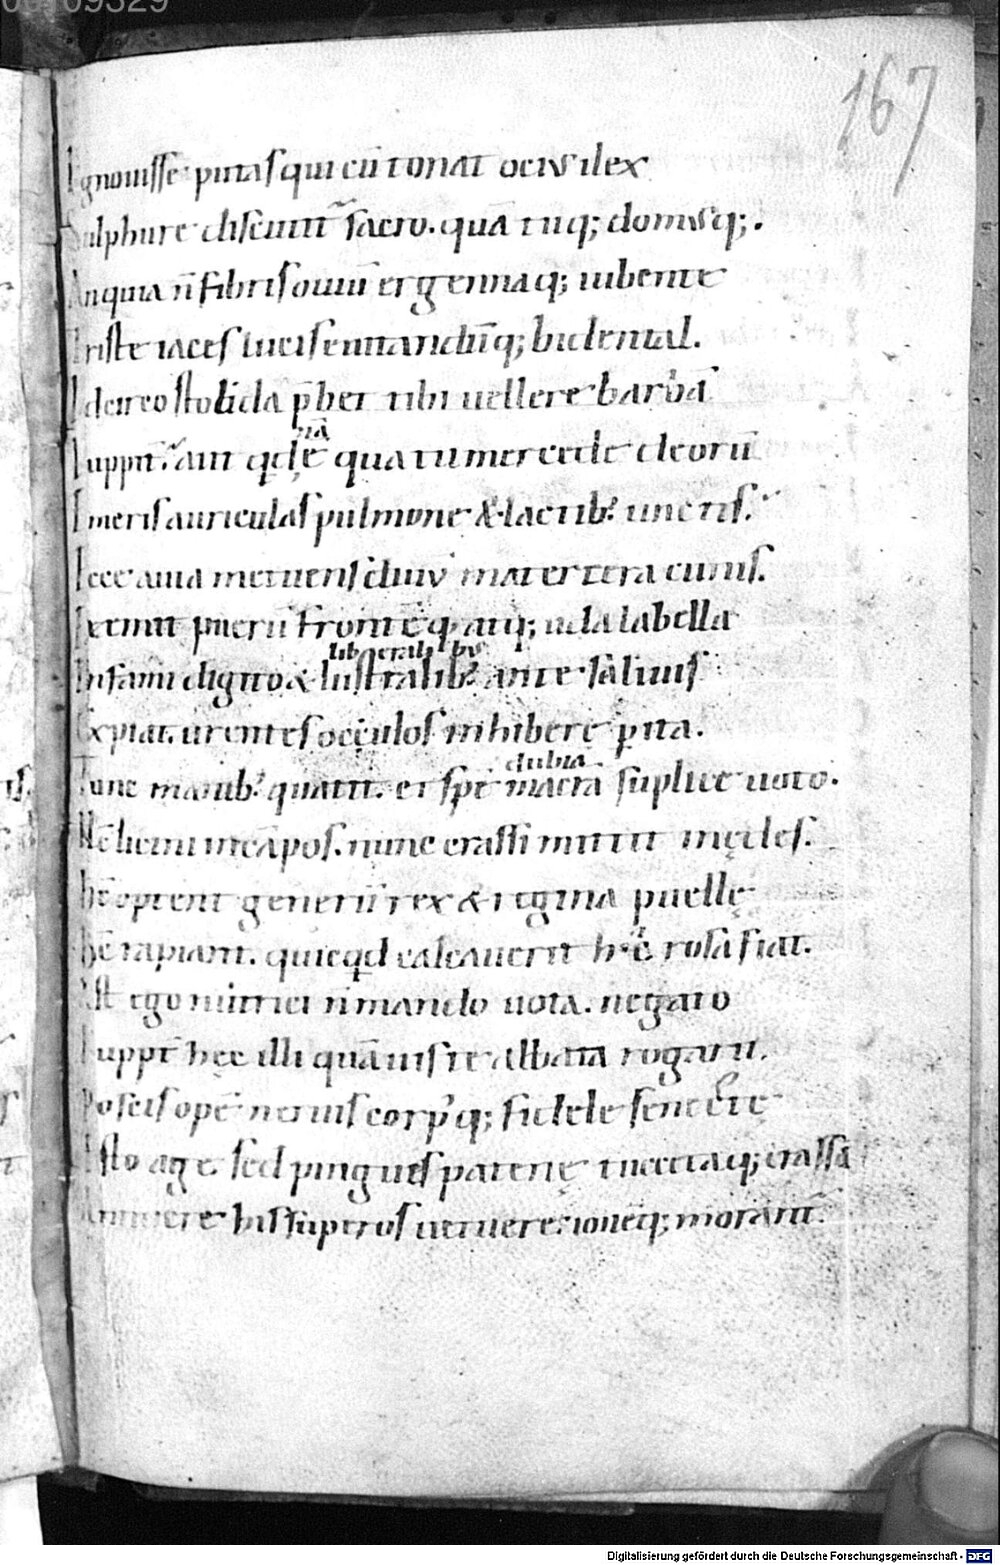 00109329
167
Ignouisse putas qui cū tonat ocius ilex
Sulphure discutit᷑ sacro. quā tuq; domusq;.
An quia n̄ fibris ouiū ergennaq; iubente
Triste iaces lucis euitandūq; bidental.
Idcirco stolida p̄bet tibi uellere barbā
Iuppit᷑ aut qd ē qua tu mercede deorū
nā
Emeris auriculas pulmone & lactib; unctis.
Ecce auia metuens diuū matertera cunis.
Exemit puerū frontēq; atq; uda labella
Infami digito & lustralib; ante saliuis
liberalibus
Expiat. urentes oculos inhibere pita.
Tunc manib; quatit. et spē macrā suplice uoto.
dubia
Nc̄ licini in cāpos. nunc crassi mittit in ędes.
hc̄ optent generū rex & regina puellę
hc̄ rapiant. quicqd calcauerit hic rosa fiat.
Ast ego nutrici n̄ mando uota. negato
Iuppit̄ hęc illi quāuis te albata rogarit.
Poscis opē neruis corpq; fidele senectę
Esto age sed pingues patenę tuccetaq; crassa
Annuere his superos uetuere iouēq; morant᷑.
Digitalisierung gefördert durch die Deutsche Forschungsgemeinschaft - DFG